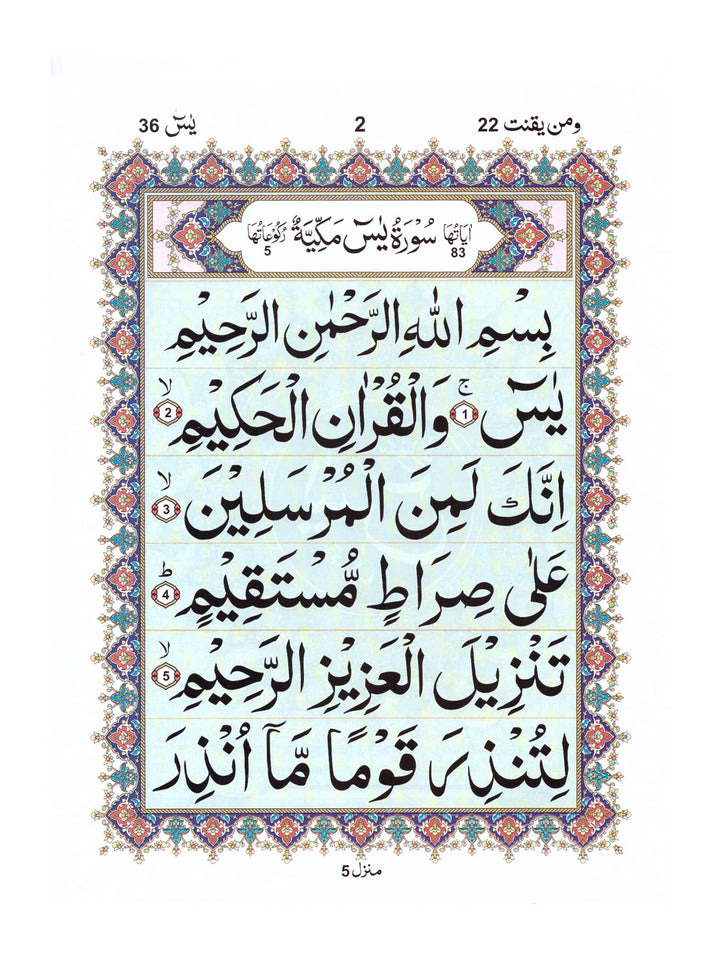 ومن يقنت 22 2 يٰسٓ 36
اٰيَاتُهَا 83 سُوْرَةُ يٰسٓ مَكِّيَّةٌ رُكُوْعَاتُهَا 5
بِسْمِ اللّٰهِ الرَّحْمٰنِ الرَّحِيْمِ
يٰسٓ ۚ 1 وَالْقُرْاٰنِ الْحَكِيْمِ ۙ 2
اِنَّكَ لَمِنَ الْمُرْسَلِيْنَ ۙ 3
عَلٰى صِرَاطٍ مُّسْتَقِيْمٍ ؕ 4
تَنْزِيْلَ الْعَزِيْزِ الرَّحِيْمِ ۙ 5
لِتُنْذِرَ قَوْمًا مَّاۤ اُنْذِرَ
منزل 5